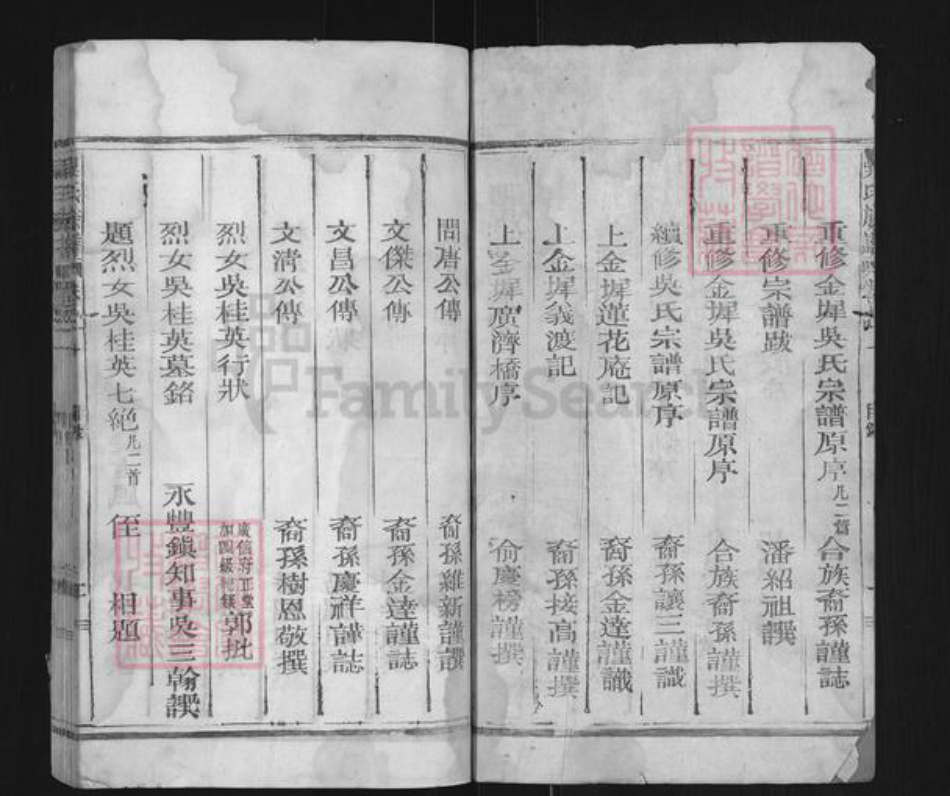 重修金墀吳氏宗譜原序凡二篇 合族裔孫謹誌
重修宗譜跋 潘紹祖譔
重修金墀吳氏宗譜原序 合族裔孫謹撰
續修吳氏宗譜原序 裔孫讓三謹識
上金墀蓮花庵記 裔孫金達謹識
上金墀義渡記 裔孫接高謹撰
上金墀廣濟橋序 俞慶榜謹撰
問唐公傳 裔孫維新謹譔
文傑公傳 裔孫金達謹誌
文昌公傳 裔孫慶祥謹誌
文清公傳 裔孫樹恩敬撰
烈女吳桂英行狀 廣信府正堂加四級紀錄郭批
烈女吳桂英墓銘 永豐鎮知事吳三翰譔
題烈女吳桂英七絕凡二首 侄 相題
FamilySearch